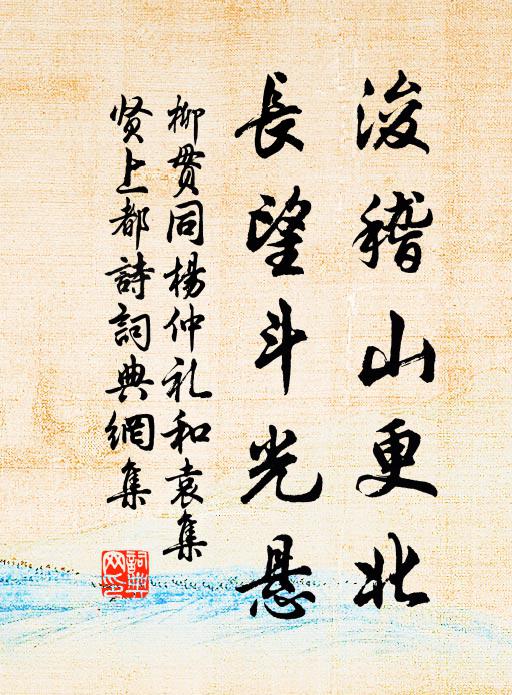 浚稽山更北
長望斗光悬
柳贯同楊仲礼和袁集
贤上都詩詞典網集